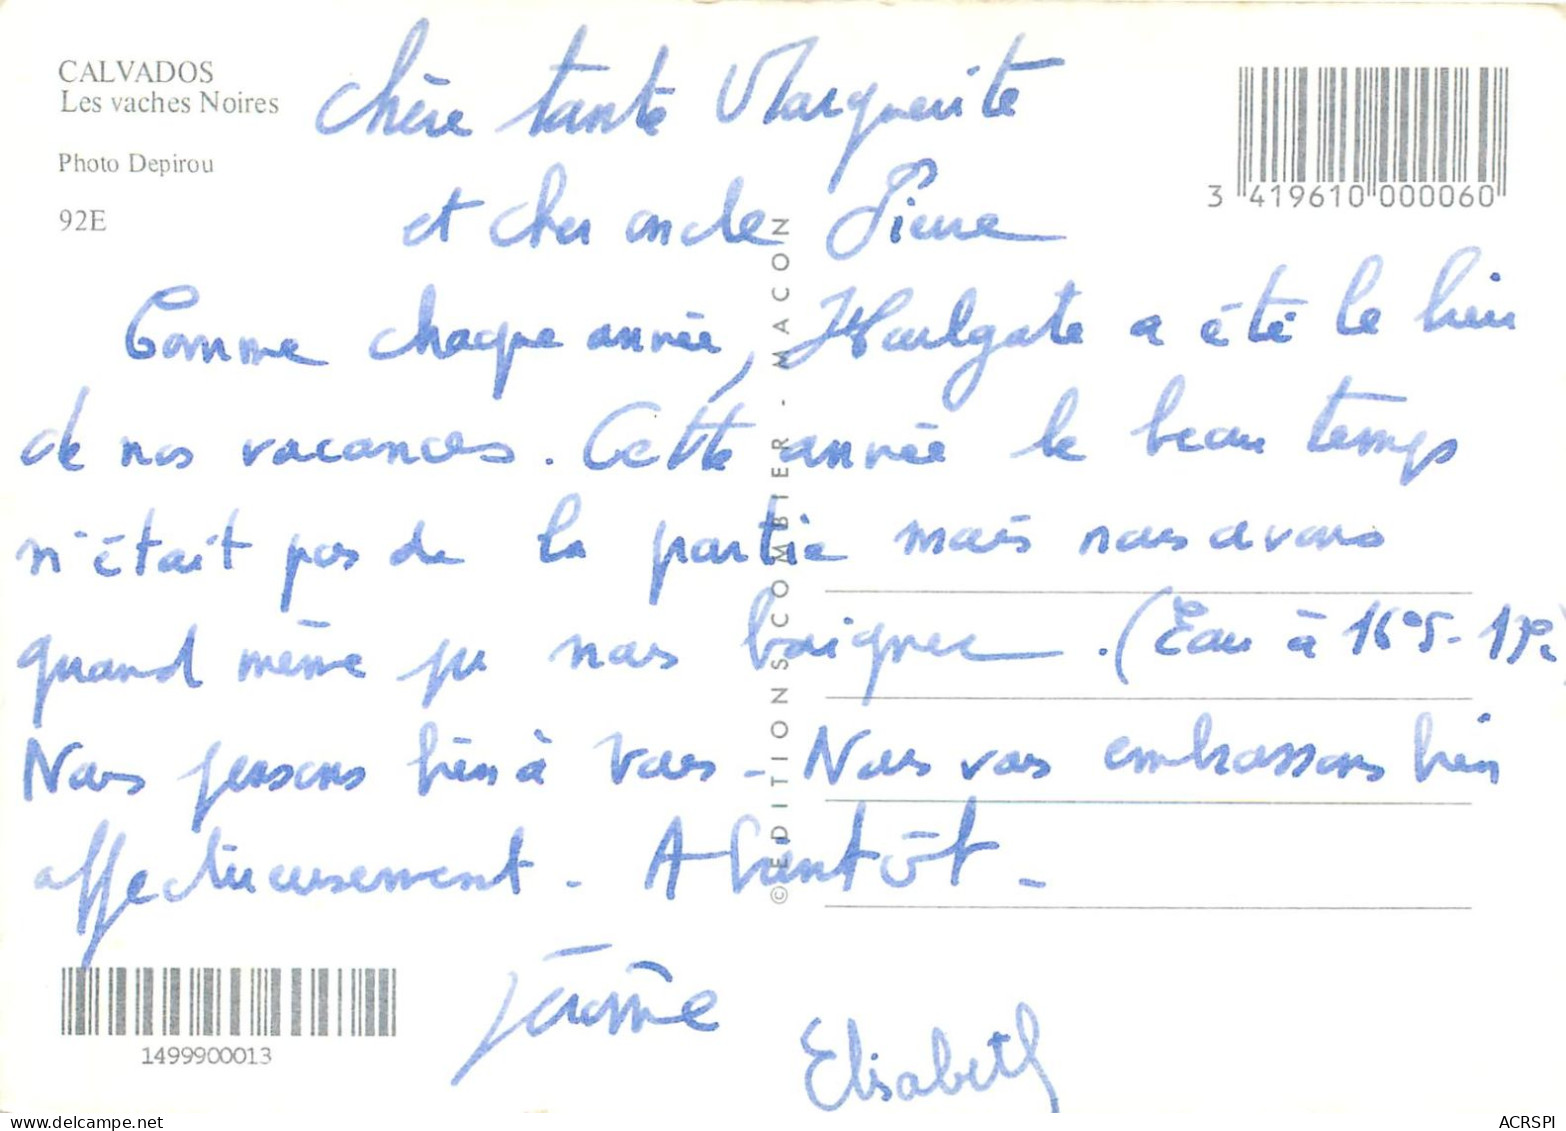 CALVADOS
Les vaches Noires
Photo Depirou
92E
3 419610 000060
Chère tante Marguerite
et cher oncle Pierre
Comme chaque année, Houlgate a été le lieu
de nos vacances. Cette année le beau temps
n'était pas de la partie mais nous avons
quand même pu nous baigner. (Eau à 16°5-17°)
Nous pensons bien à vous - Nous vous embrassons bien
affectueusement. A bientôt -
Jérôme
Elisabeth
© EDITIONS COMBIER - MACON
1499900013
ACRSPI